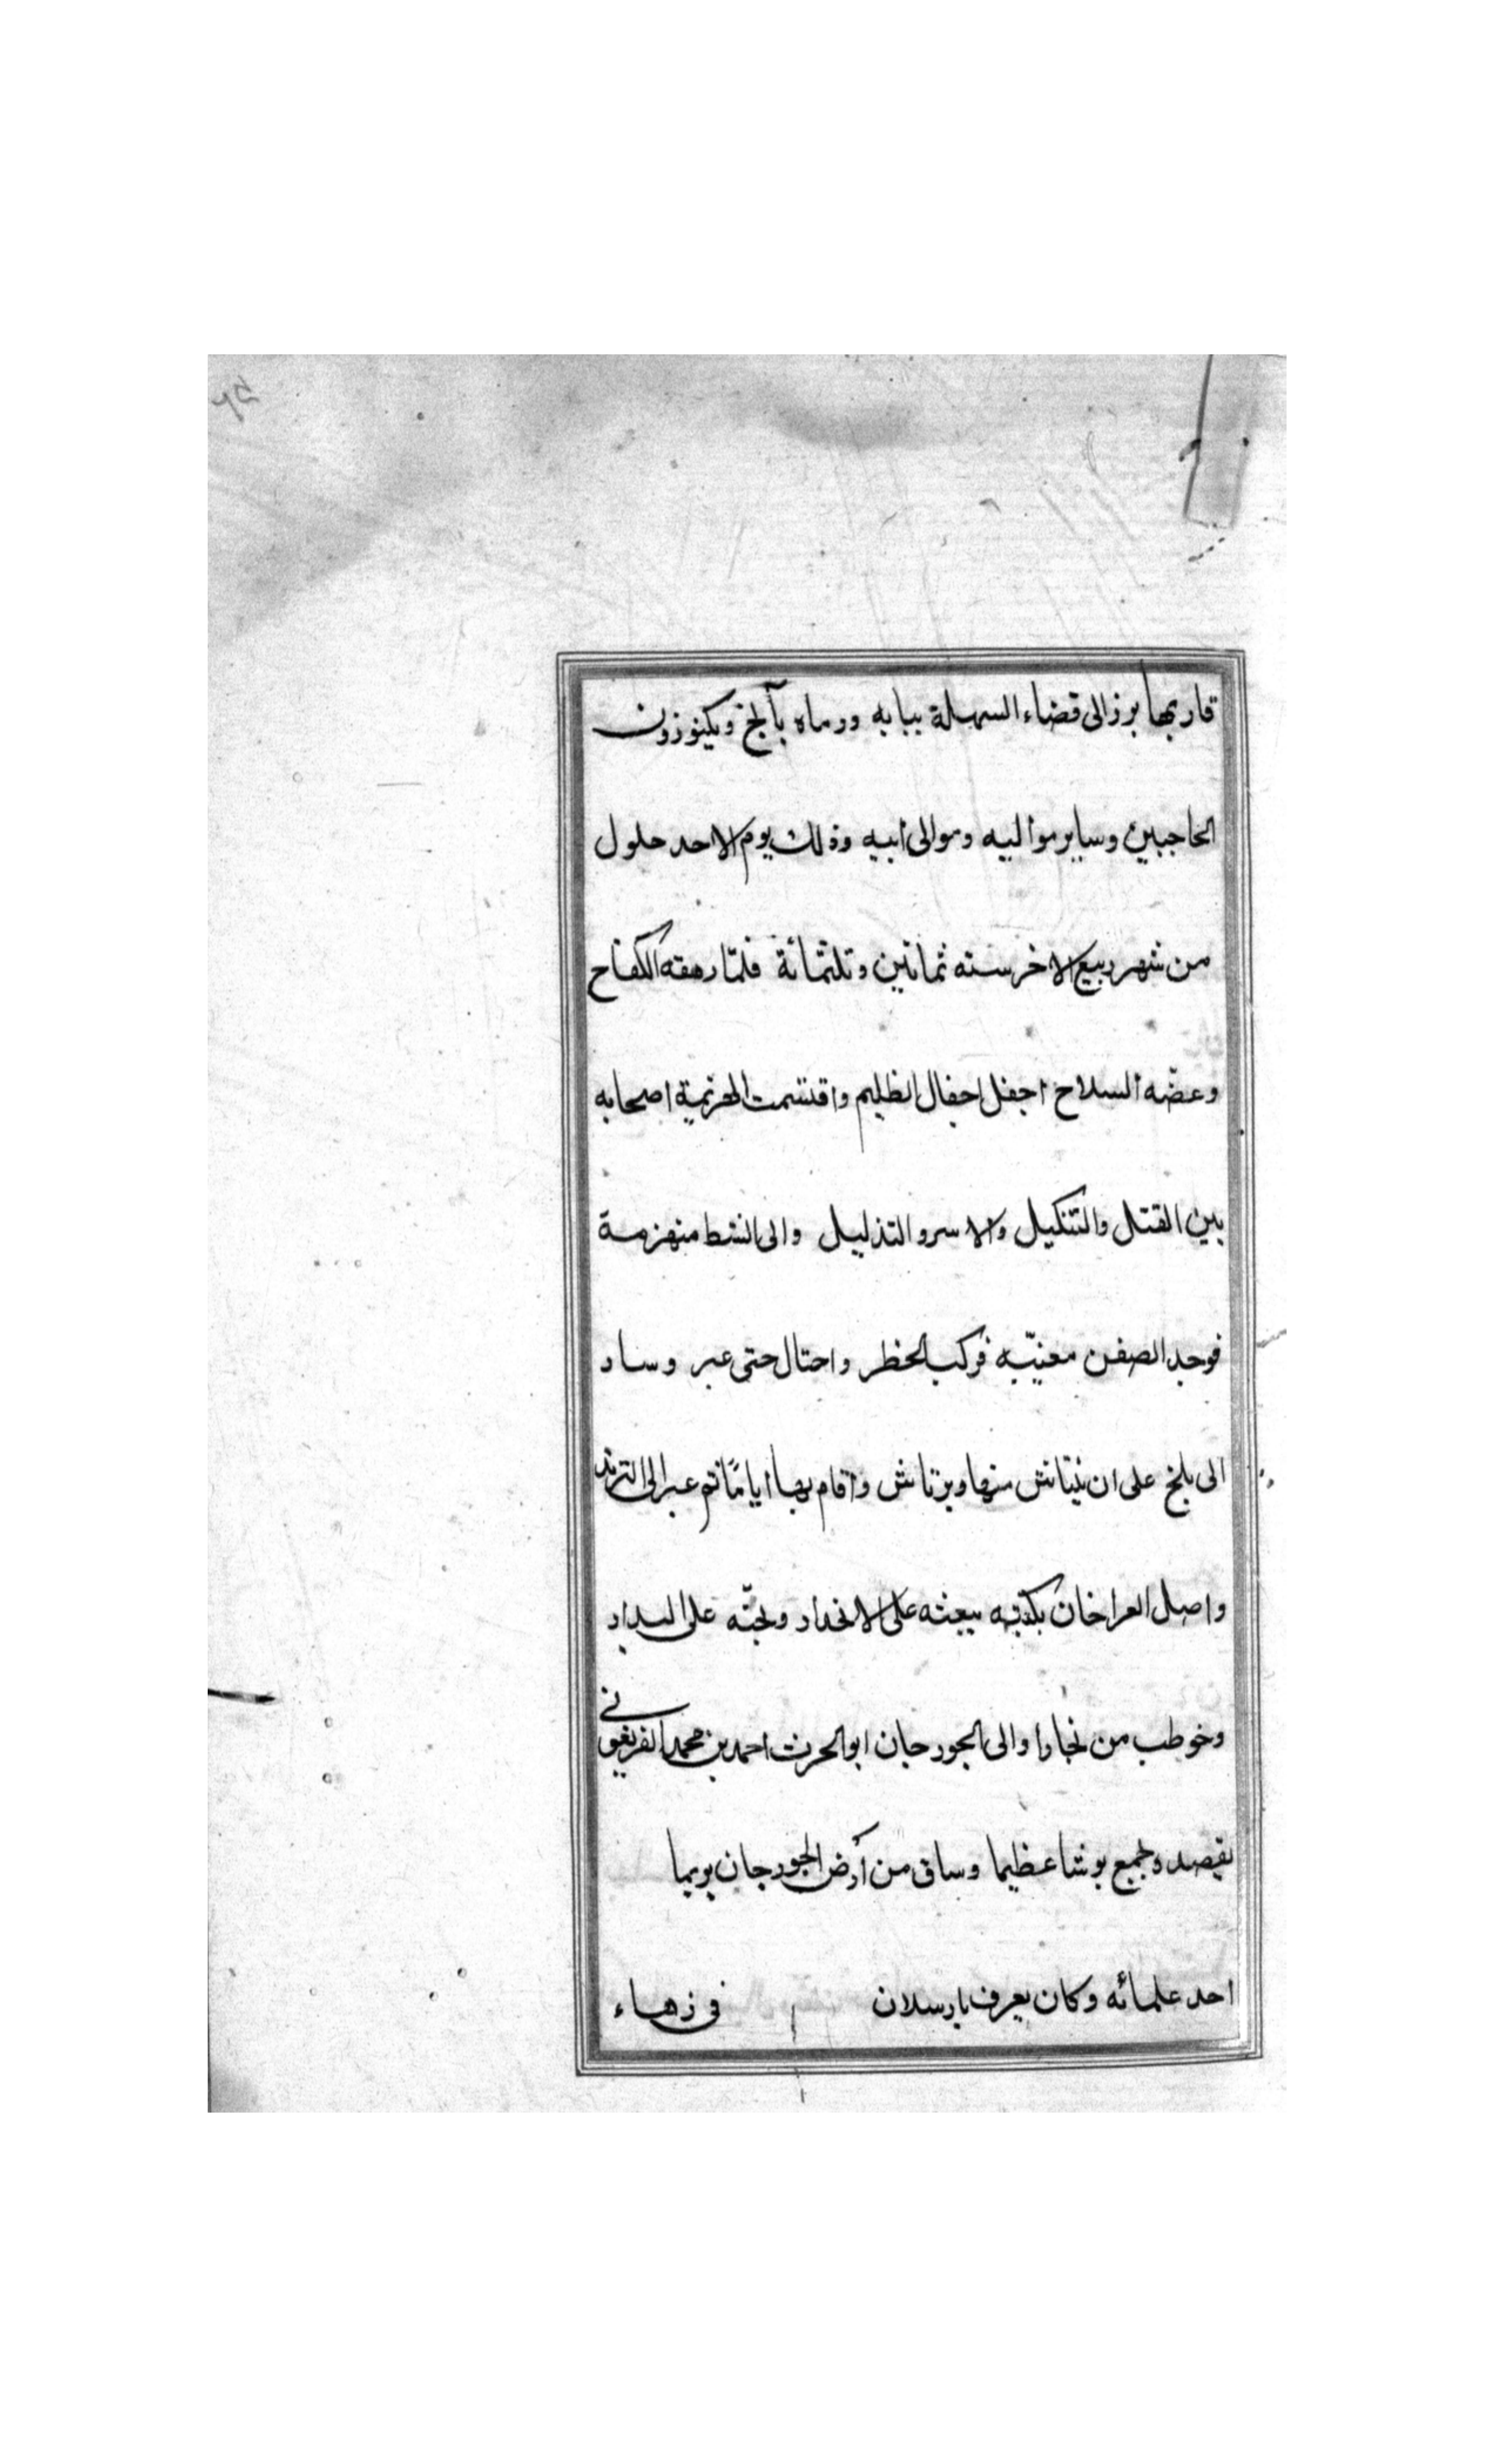 قاربها برز الى قضاء السهلة ببابه ورماه بآلجخ وبكينوزون
الحاجبين وساير مواليه وموالى ابيه وذلك يوم الاحد حلول
من شهر ربيع الاخر سنه ثمانين وتلثمائة فلمّا رهقه الكفاح
وعضّه السلاح اجفل اجفال الظليم واقتسمت الهزيمة اصحابه
بين القتل والتنكيل والاسر والتذليل والى الشط منهزمة
فوجد الصفن معنيّبه فركب الخطر واحتال حتى عبر وساد
الى بلخ على ان ينتاش منها ويرتاش واقام بها ايامًا ثم عبر الى الترمذ
واصل العراخان بكتبه يبعثه على الانحداد ولجثّه على البداد
وخوطب من نجارا والى الجورجان ابوالحرث احمد بن محمد الفريغونى
بقصد وجمع بوشا عظيما وساق من أرض الجورجان يريما
احد علمائه وكان يعرف بارسلان في زهاء